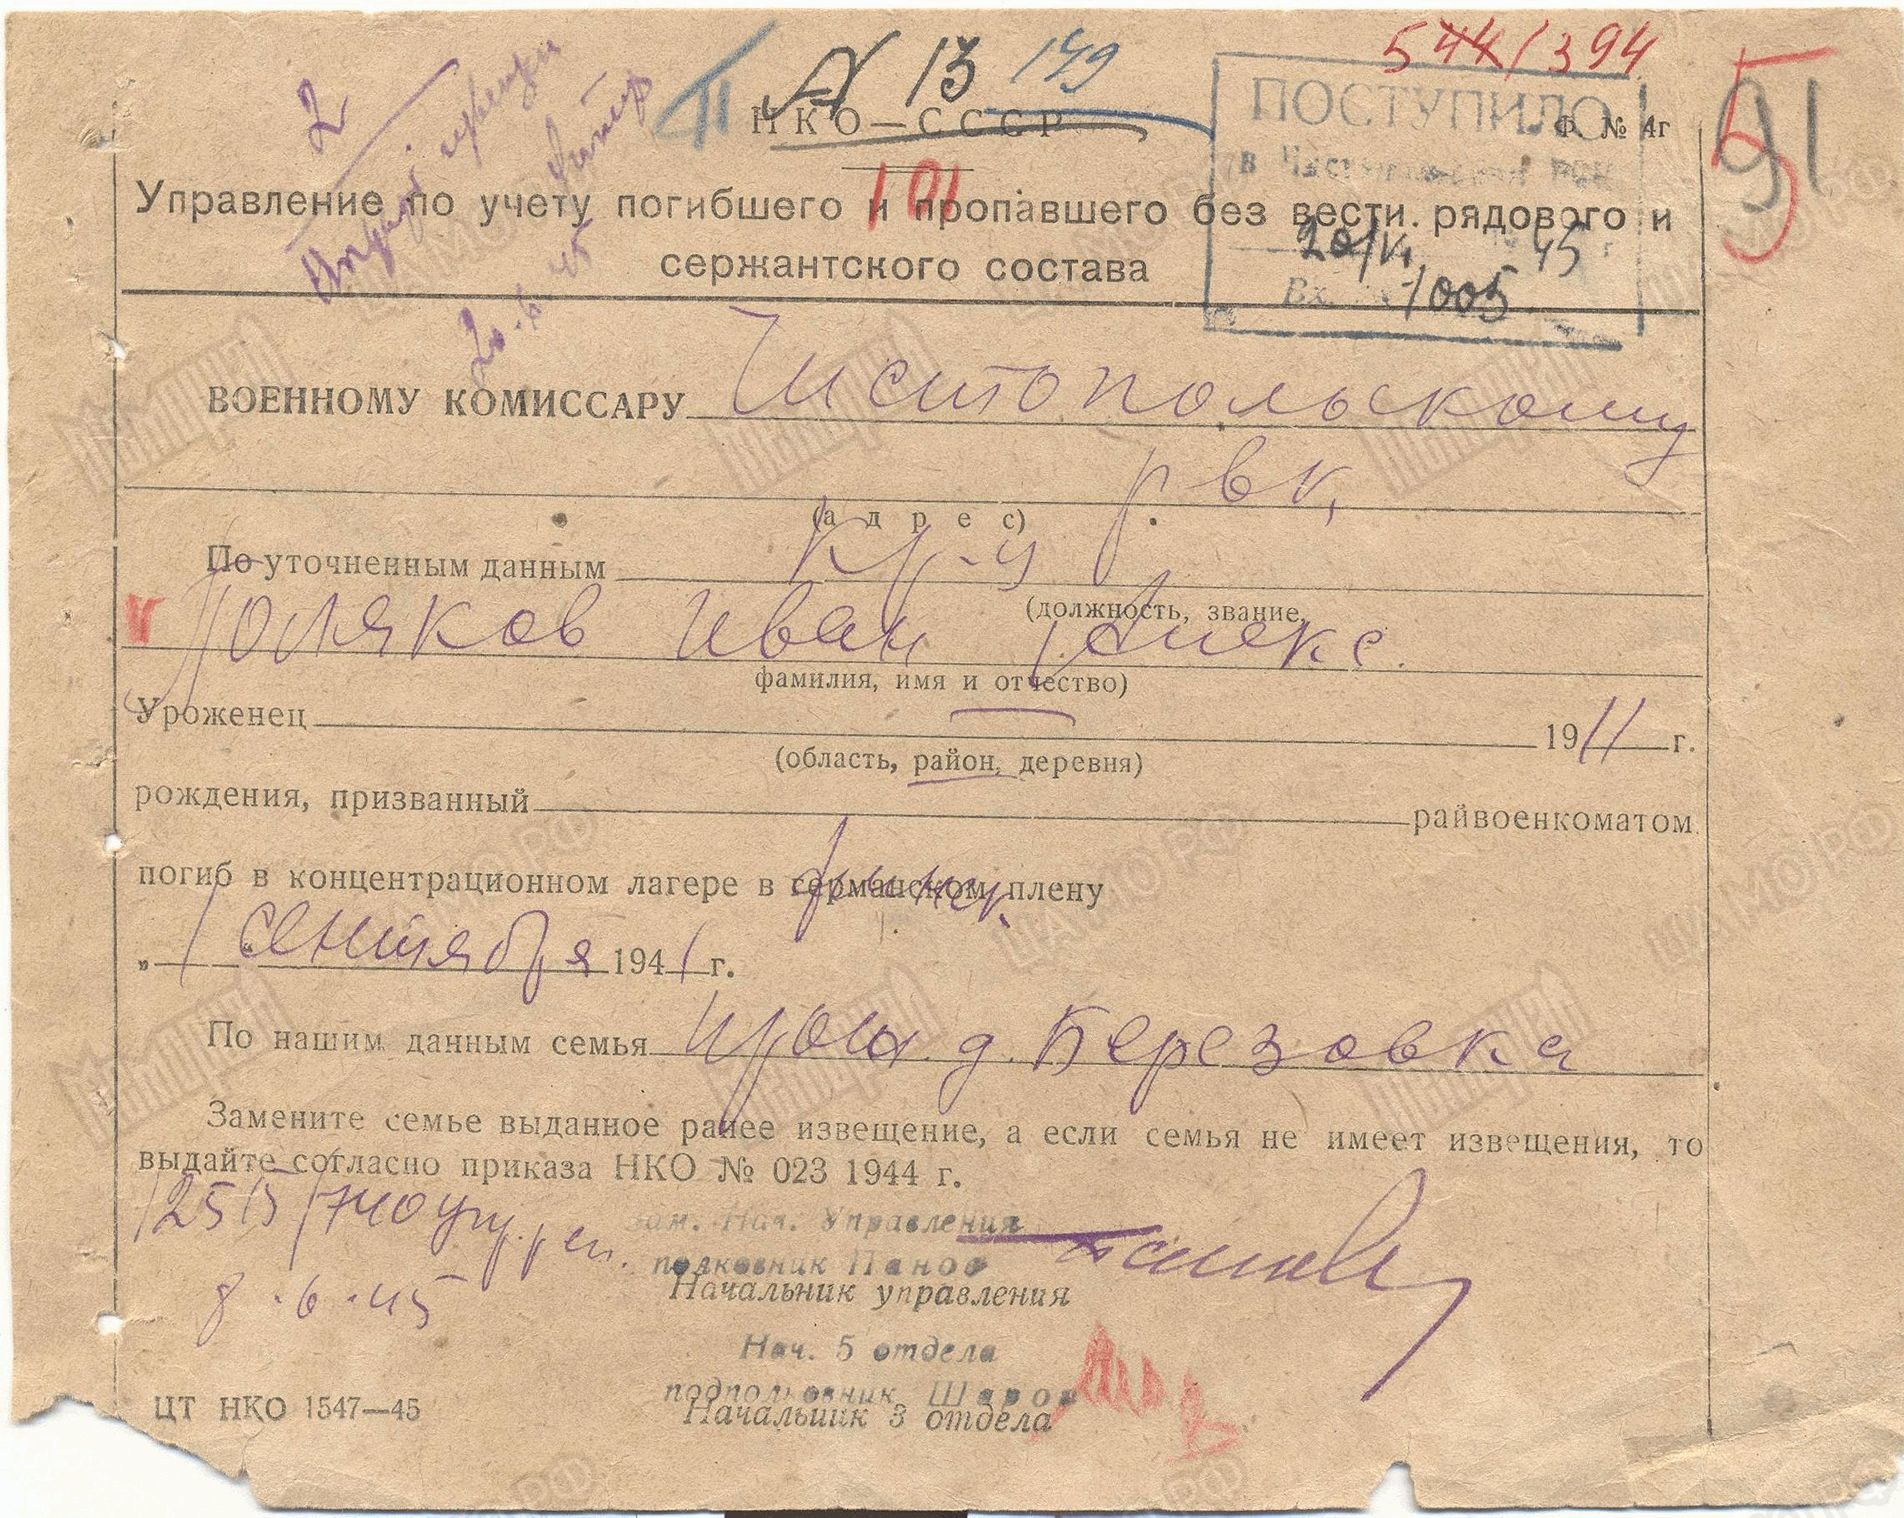 544/394
№ 13 149
НКО—СССР
Ф. № 4г
ПОСТУПИЛО
91
5
2
101
Управление по учету погибшего и пропавшего без вести рядового и
сержантского состава
20/VI 45 г
Вх. № 1005
20.6.45
ВОЕННОМУ КОМИССАРУ Чистопольскому
РВК,
(адрес)
По уточненным данным кр-ц
(должность, звание,
v Поляков Иван Алекс.
фамилия, имя и отчество)
Уроженец — 1911 г.
(область, район, деревня)
рождения, призванный райвоенкоматом
погиб в концентрационном лагере в германском плену
финск.
„1 сентября 1941 г.
По нашим данным семья прож. д. Березовка
Замените семье выданное ранее извещение, а если семья не имеет извещения, то
выдайте согласно приказа НКО № 023 1944 г.
зам. Нач. Управления
полковник Панов
Начальник управления
8.6.45
Нач. 5 отдела
подполковник Шаров
Начальник 3 отдела
ЦТ НКО 1547—45
МЕМОРИАЛ
ЦАМО РФ